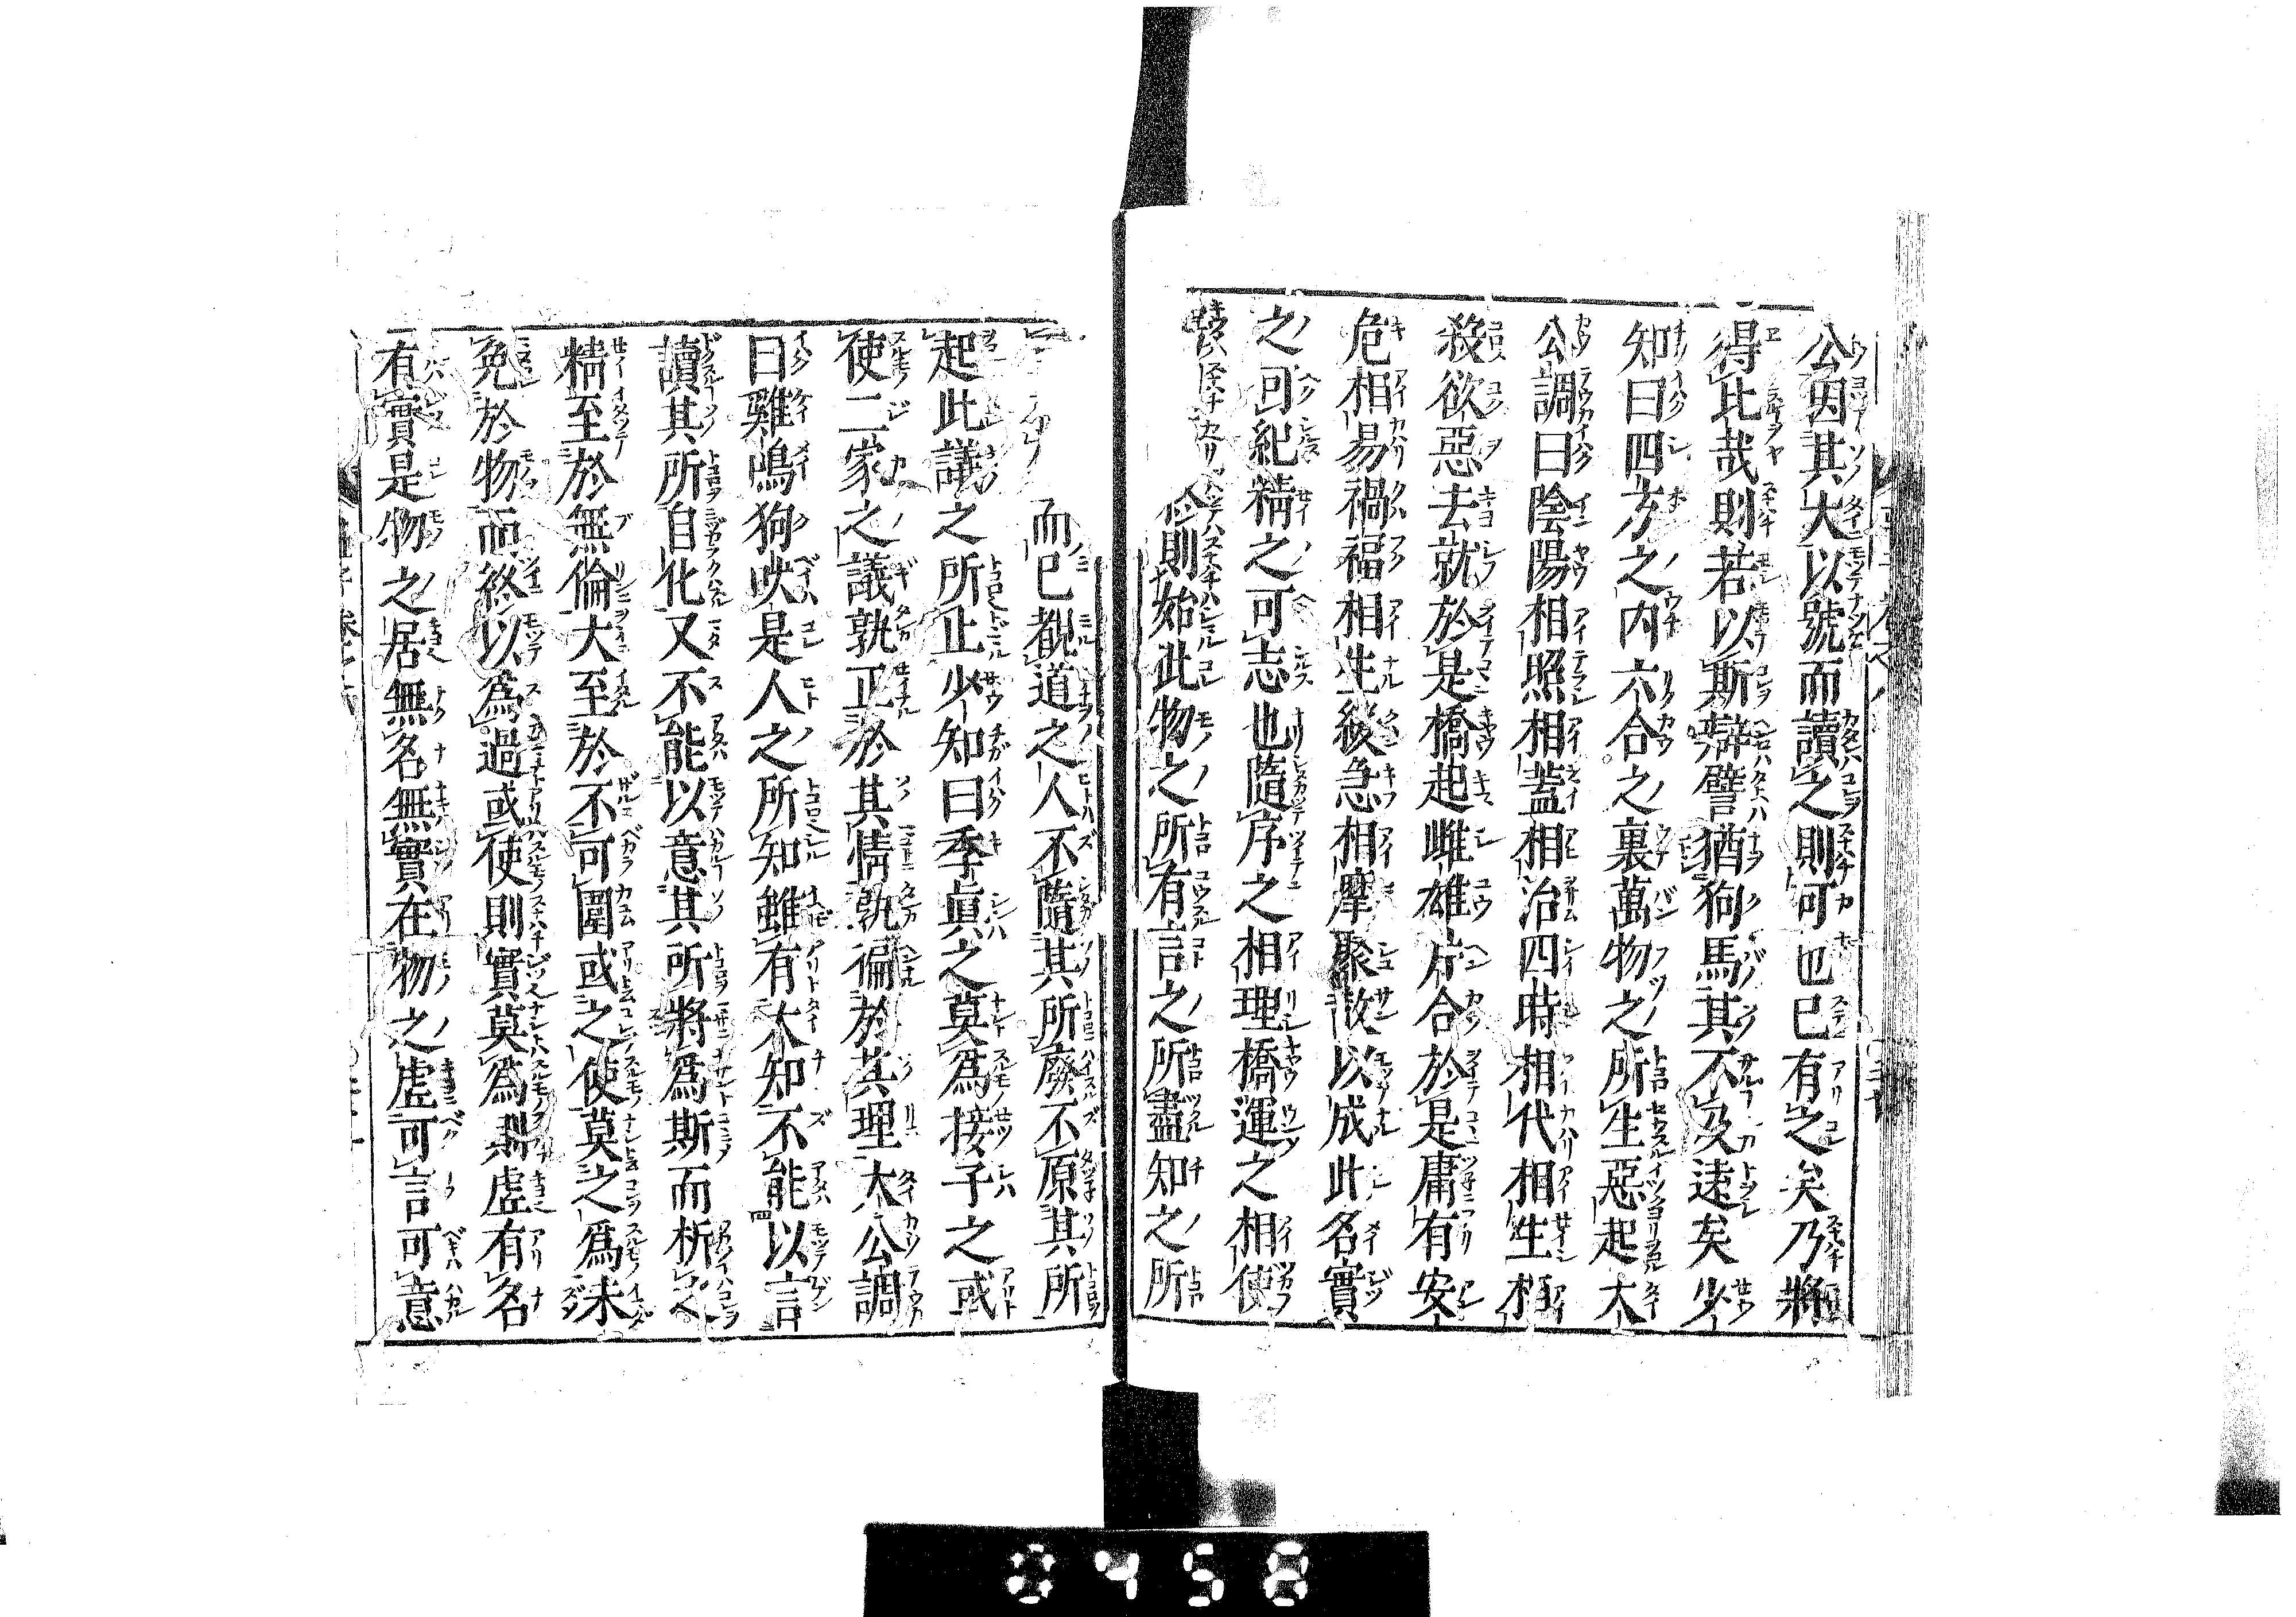 公因其大以號而讀之則可也已有之矣乃將
得比哉則若以斯辯譬猶狗馬其不及遠矣少
知曰四方之內六合之裏萬物之所生惡起大
公調曰陰陽相照相蓋相治四時相代相生相
殺欲惡去就於是橋起雌雄片合於是庸有安
危相易禍福相生緩急相摩聚散以成此名實
之可紀精之可志也隨序之相理橋運之相使
則始此物之所有言之所盡知之所
而已覩道之人不隨其所廢不原其所
起此議之所止少知曰季真之莫爲接子之或
使二家之議孰正於其情孰徧於其理大公調
曰雞鳴狗吠是人之所知雖有大知不能以言
讀其所自化又不能以意其所將爲斯而析之
精至於無倫大至於不可圍或之使莫之爲未
免於物而終以爲過或使則實莫爲則虛有名
有實是物之居無名無實在物之虛可言可意
0458